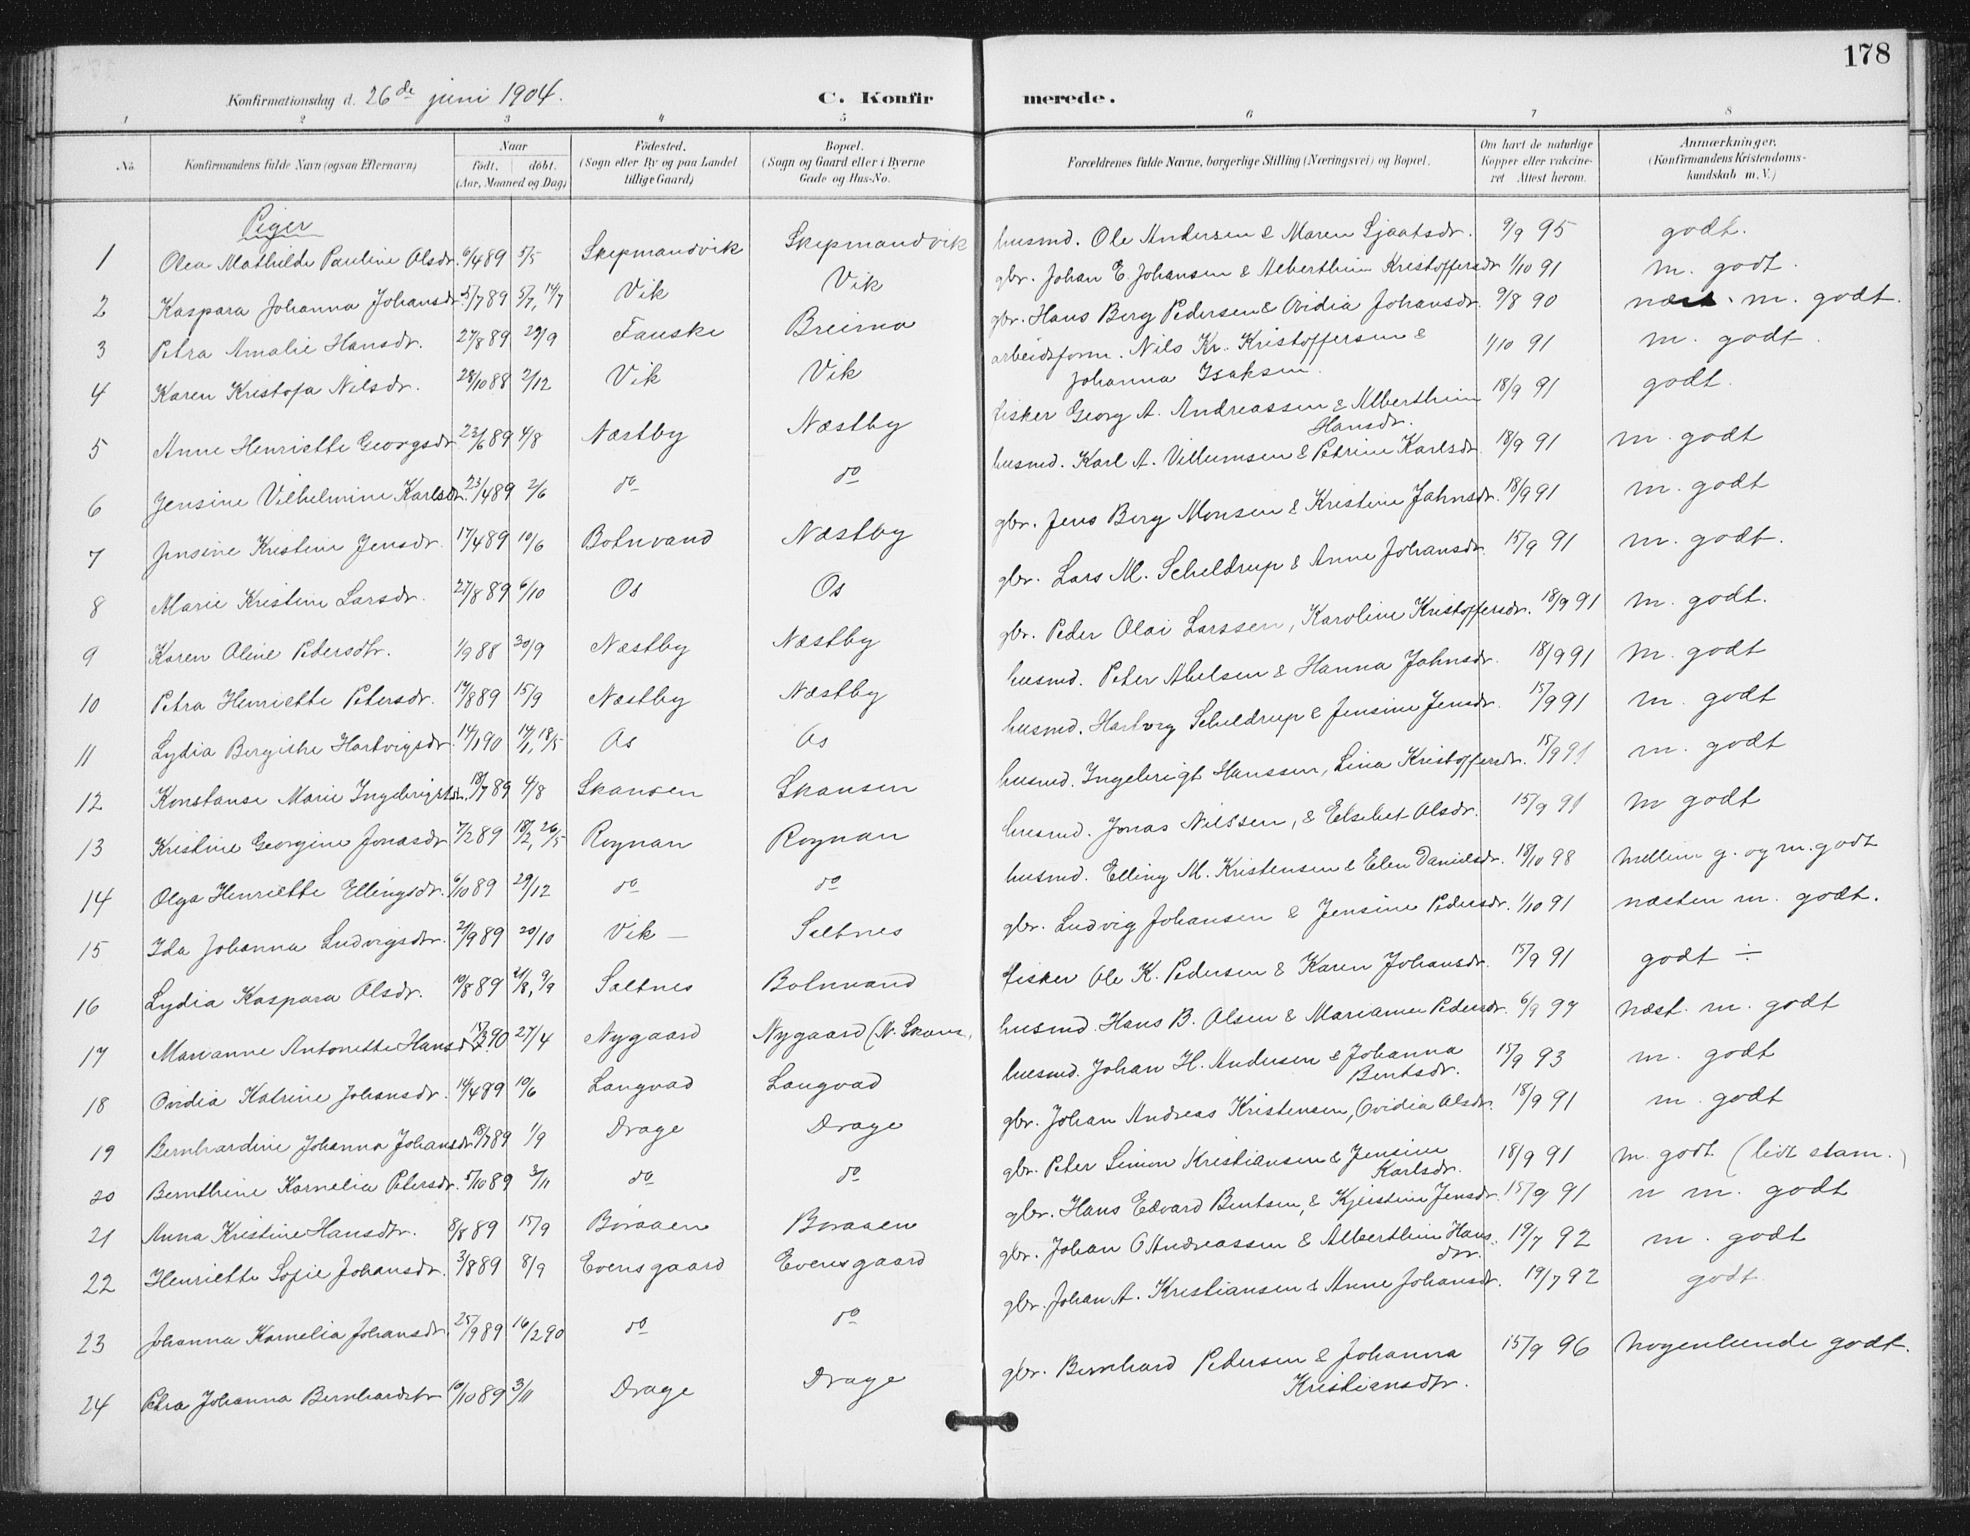 178
Konfirmationsdag d. 26de juni 1904.
C. Konfir merede.
1 2 3 4 5 6 7 8
No. Konfirmandens fulde Navn (ogsaa Efternavn) Naar født. døbt. (Aar, Maaned og Dag) Fødested. (Sogn eller By og paa Landet tillige Gaard) Bopæl. (Sogn og Gaard eller i Byerne Gade og Hus-No. Forældrenes fulde Navne, borgerlige Stilling (Næringsvei) og Bopæl. Om havt de naturlige Kopper eller vakcineret Attest herom. Anmærkninger. (Konfirmandens Kristendomskundskab m. V.)
Piger
1 Olea Mathilde Pauline Olsdr. 6/4 89 5/5 Skepmandvik Skepmandvik husmd. Ole Andersen & Maren Sjaatsdr. 9/9 95 godt.
2 Kaspara Johanna Johansdr. 5/7 89 5/7, 14/7 Vik Vik gbr. Johan E. Johansen & Alberthine Kristoffersdr 1/10 91 m. godt.
3 Petra Amalie Hansdr. 27/8 89 29/9 Fauske Breimo gbr. Hans Berg Pedersen & Ovidia Johansdr. 9/8 90 næst. m. godt.
4 Karen Kristofa Nilsdr. 28/10 88 2/12 Vik Vik arbeidsform. Nils Kr. Kristoffersen & Johanna Isaksen. 1/10 91 m. godt.
5 Anne Henriette Georgsdr 23/6 89 4/8 Næstby Næstby fisker Georg A. Andreassen & Alberthine Hansdr. 18/9 91 godt.
6 Jensine Vilhelmine Karlsdr. 23/4 89 2/6 do do husmd. Karl A. Villumsen & Petrine Karlsdr 18/9 91 m. godt
7 Jensine Kristine Jensdr. 17/4 89 10/6 Botnvand Næstby gbr. Jens Berg Monsen & Kristine Jahnsdr. 18/9 91 m. godt
8 Marie Kristine Larsdr. 27/8 89 6/10 Os Os gbr. Lars M. Scheldrup & Anne Johansdr. 15/9 91 m. godt.
9 Karen Oline Pedersdtr. 1/9 88 30/9 Næstby Næstby gbr. Peder Olai Larssen, Karoline Kristoffersdr. 18/9 91 m. godt.
10 Petra Henriette Petersdr. 17/8 89 15/9 Næstby Næstby husmd. Peter Abelsen & Hanna Jahnsdr. 18/9 91 m. godt
11 Lydia Bergithe Hartvigsdr. 14/1 90 14/1, 18/5 Os Os husmd. Hartvig Scheldrup & Jensine Jensdr. 15/9 91 m. godt
12 Konstanse Marie Ingebrigtsdr. 18/7 89 4/8 Skansen Skansen husmd. Ingebrigt Hanssen, Lina Kristoffersdr. 15/9 91 m. godt
13 Kristine Georgine Jonasdr 7/2 89 18/2, 26/5 Rognan Rognan husmd. Jonas Nilssen, & Elsebet Olsdr. 15/9 91 m godt
14 Olga Henriette Ellingsdr. 6/10 89 29/12 do do husmd. Elling M. Kristensen & Elen Danielsdr. 18/10 98 mellem g. og m. godt
15 Ida Johanna Ludvigsdtr. 2/9 89 20/10 Vik — Saltnes gbr. Ludvig Johansen & Jensine Pedersdr. 1/10 91 næsten m. godt.
16 Lydia Kaspara Olsdr. 10/8 89 21/8, 9/9 Saltnes Botnvand fisker Ole K. Pedersen & Karen Johansdr. 15/9 91 godt ÷
17 Marianne Antonette Hansdr. 15/3 90 27/4 Nygaard Nygaard (N. Skans, husmd. Hans B. Olsen & Marianne Pedersdr. 6/9 97 næst. m. godt
18 Ovidia Katrine Johansdr. 14/4 89 10/6 Langvad Langvad husmd. Johan H. Andersen & Johanna Bentsdr. 15/9 93 m. godt
19 Bernhardine Johanna Johansdr. 18/7 89 1/9 Drage Drage gbr. Johan Andreas Kristensen, Ovidia Olsdr. 18/9 91 m. godt
20 Bernthine Kornelia Petersdr. 5/10 89 3/11 do do gbr. Peter Simon Kristiansen & Jensine Karlsdr. 18/9 91 m. godt (lidt stam.)
21 Anna Kristine Hansdtr. 8/8 89 15/9 Boraaen Boraaen gbr. Hans Edvard Bentsen, & Kjerstine Jensdr. 15/9 91 n m. godt
22 Henriette Sofie Johansdr. 3/8 89 8/9 Evensgaard Evensgaard gbr. Johan O Andreassen & Alberthine Hansdtr. 19/7 92 m. godt
23 Johanna Kornelia Johansdr. 25/9 89 16/2 90 do do gbr. Johan A. Kristiansen & Anne Johansdr. 19/7 92 godt
24 Petra Johanna Bernhardstr 10/10 89 3/11 Drage Drage gbr. Bernhard Pedersen & Johanna Kristiansdtr. 15/9 96 nogenlunde godt.